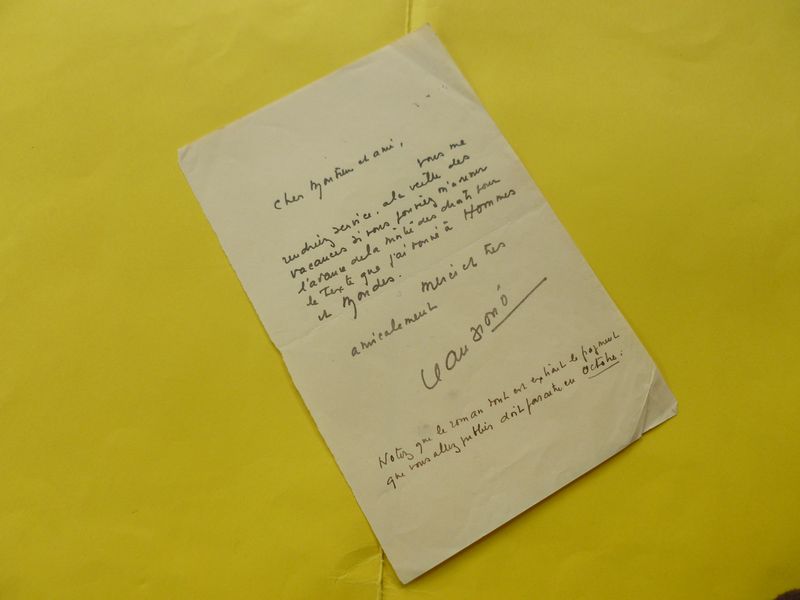 Cher Monsieur et ami,
vous me
rendriez service, à la veille des
vacances si vous pouviez m'avancer
l'avance de la moitié des droits pour
le texte que j'ai donné à Hommes
et Mondes.
Merci et très
amicalement
Jean Giono
Notez que le roman dont est extrait le fragment
que vous allez publier doit paraître en Octobre.